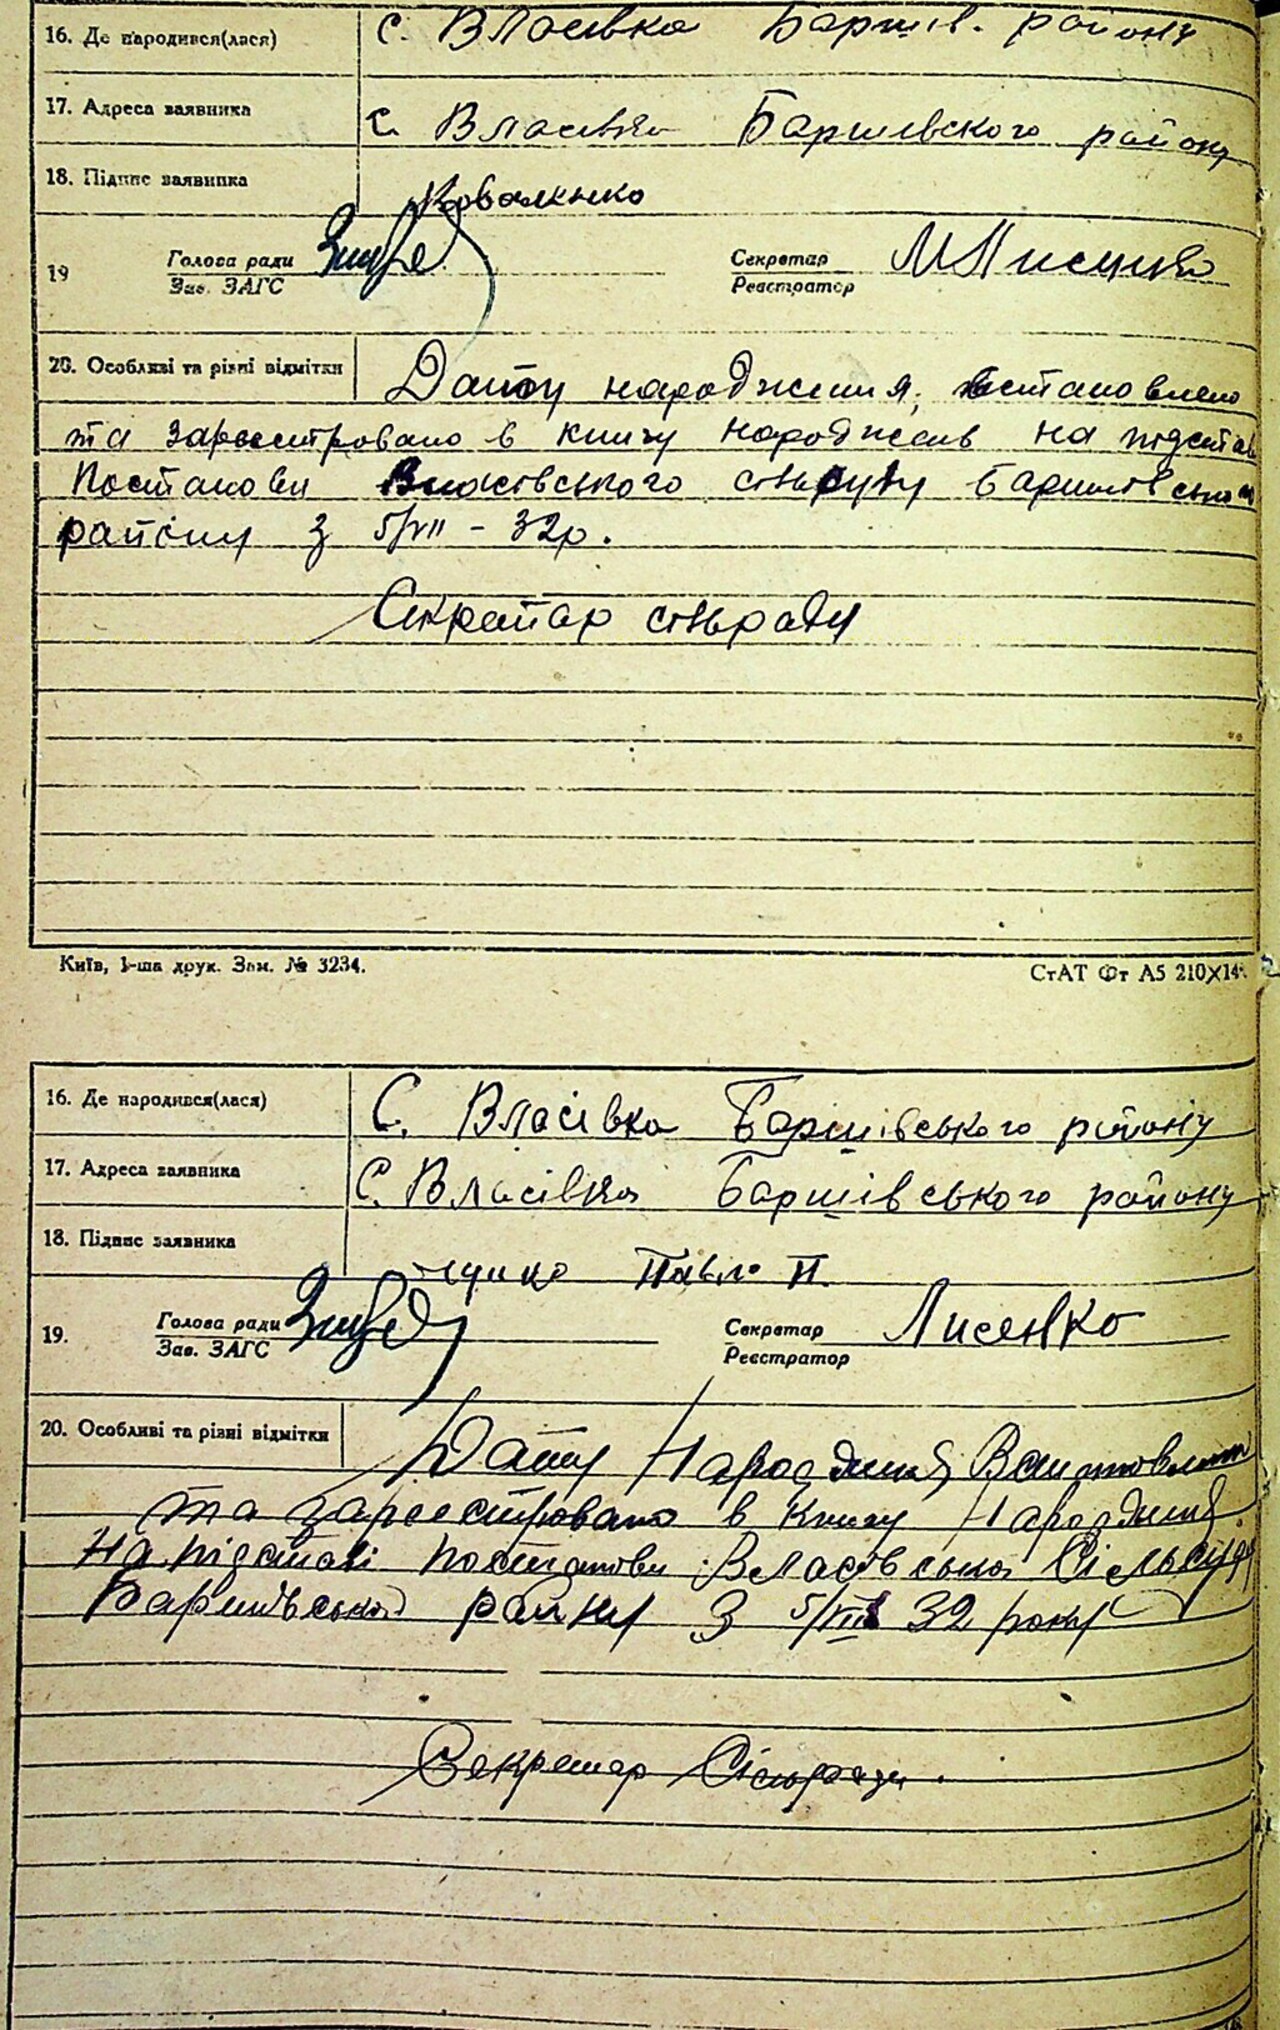 16. Де народився(лася) с. Власівка Бариш‌ів. району
17. Адреса заявника с. Власівка Баришевского району
18. Підпис заявника Коваленко
19 Голова ради Секретар М Лисенко
Зав. ЗАГС Реєстратор
20. Особливі та різні відмітки Дату народження, встановлено
та зареєстровано в книгу народженів на підставі
Постанови Власівського сільсуду Баришівського
району з 5/VII - 32р.
Секретар сільради
Київ, 1-ша друк. Зам. № 3234. СтАТ Фт А5 210X14
16. Де народився(лася) С. Власівка Баришівського району
17. Адреса заявника С. Власівка Баришівського району
18. Підпис заявника Павло П.
19. Голова ради Секретар Лисенко
Зав. ЗАГС Реєстратор
20. Особливі та різні відмітки Дату Народження Встановлено
та зареєстровано в Книгу Народження
На підставі постанови Власівська Сільсуда
Баришівського району З 5/VII 32 року
Секретар Сільради.